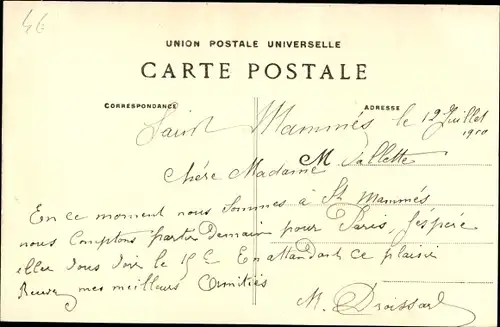 4E
UNION POSTALE UNIVERSELLE
CARTE POSTALE
CORRESPONDANCE
ADRESSE
Saint Mammés le 12 Juillet
1910
Chére Madame M. Vallette
En ce moment nous Sommes à St Mammés
nous Comptons partir Demain pour Paris, J'espère
aller Vous Voir le 15 En attendant ce plaisir
Recevez mes meilleurs Amitiés
M. Droissart